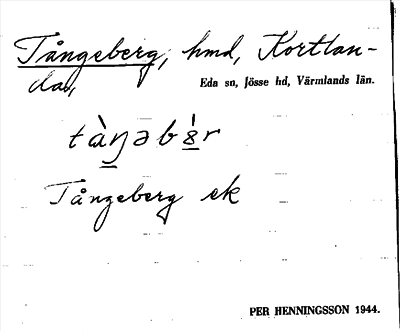 Tångeberg, hmd, Kortlan-
da,
Eda sn, Jösse hd, Värmlands län.
Tångeberg ek
PER HENNINGSSON 1944.